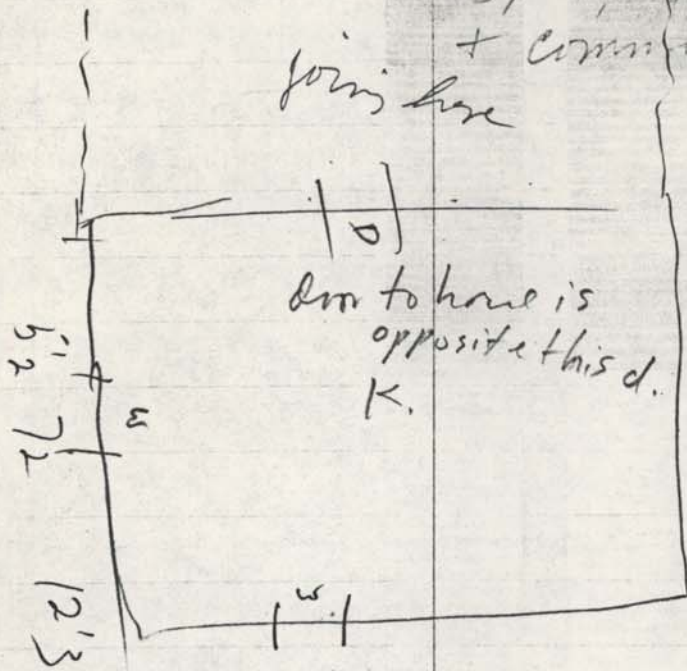 + comm
joins here
D
door to house is
opposite this d.
K.
5'2
W
7'2
12'3
W